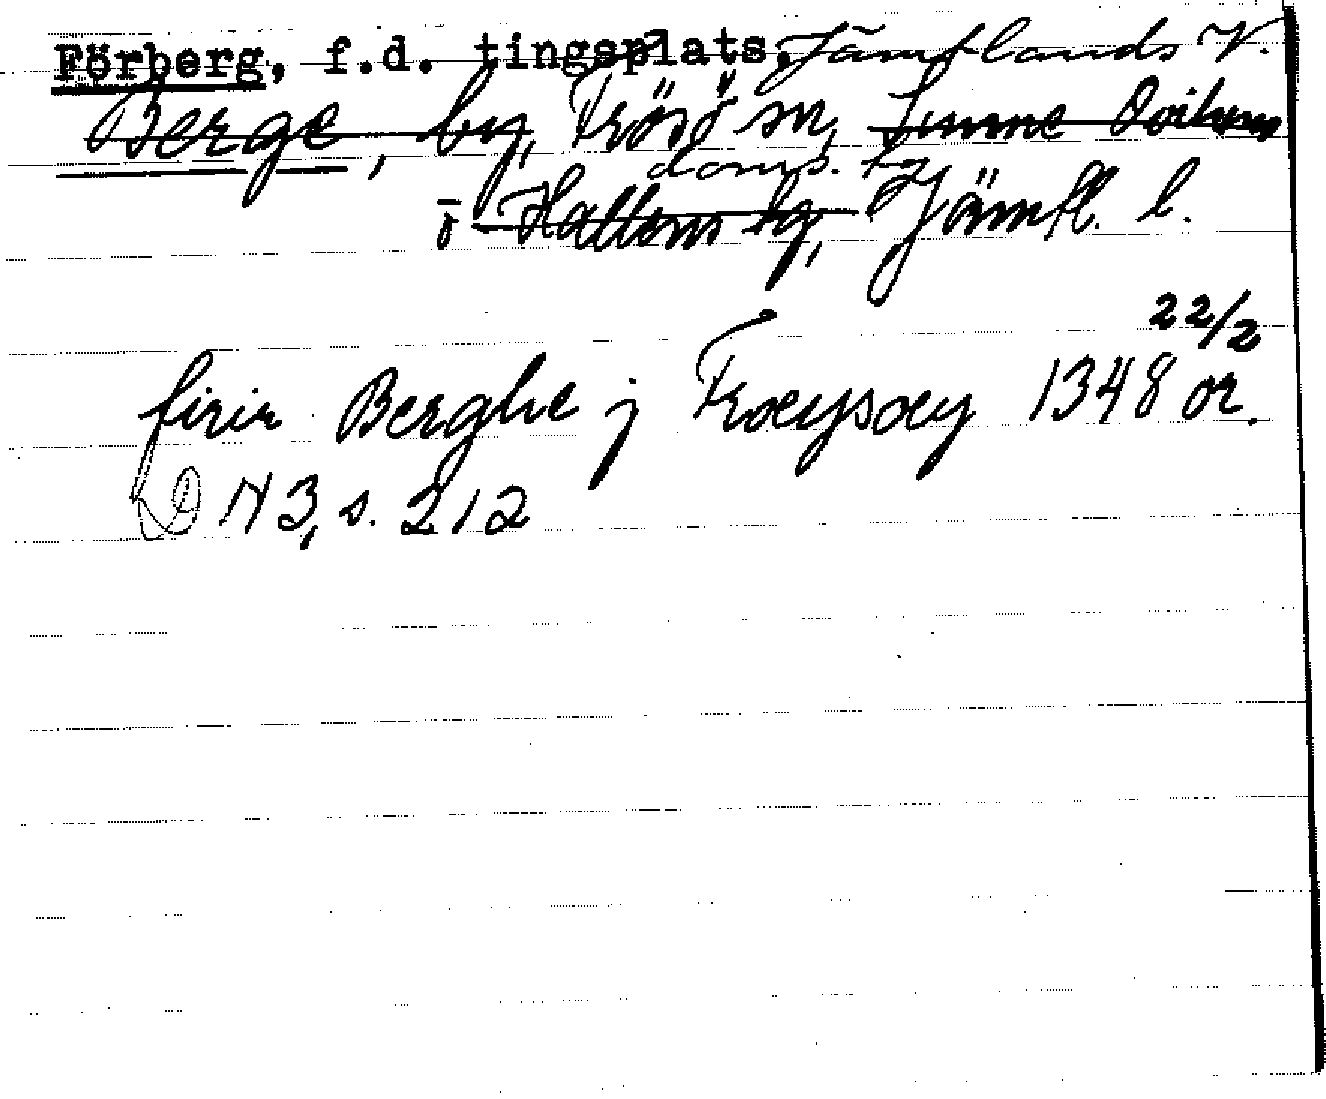 Förberg, f.d. tingsplats, Jämtlands V.
Berge, by, Frösö sn, Sunne
doms. hg
o Hallens tg, Jämtl. l.
22/2
firir Berghe j Frœysœy 1348 or.
DN 3, s. 212